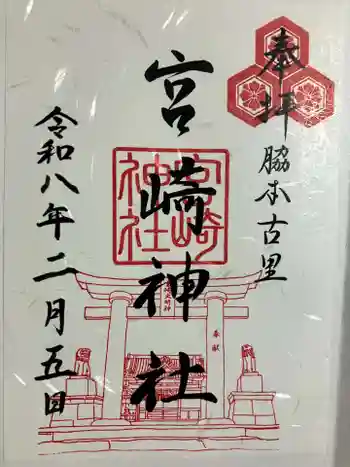 奉拝
脇本古里
宮崎神社
宮崎
神社
奉献
令和八年二月五日